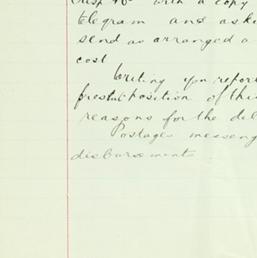 with a copy
telegram and aski
send as arranged a
cost
Writing you repor
present position of thi
reasons for the del
Postages messeng
disbursements